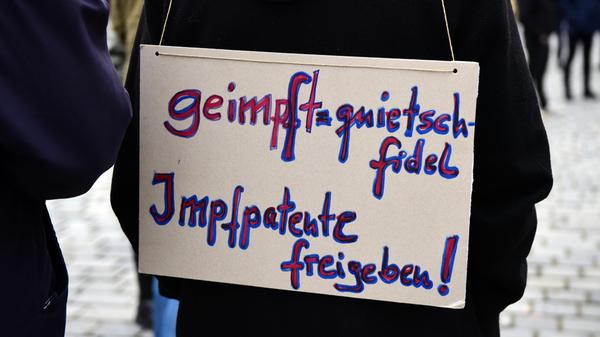 geimpft = quietsch-
fidel
Impfpatente
freigeben!